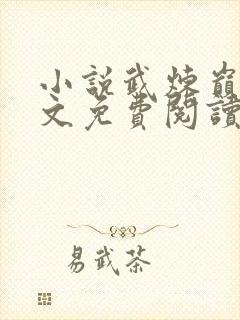 小說武煉巔
文免費閱讀
易武茶